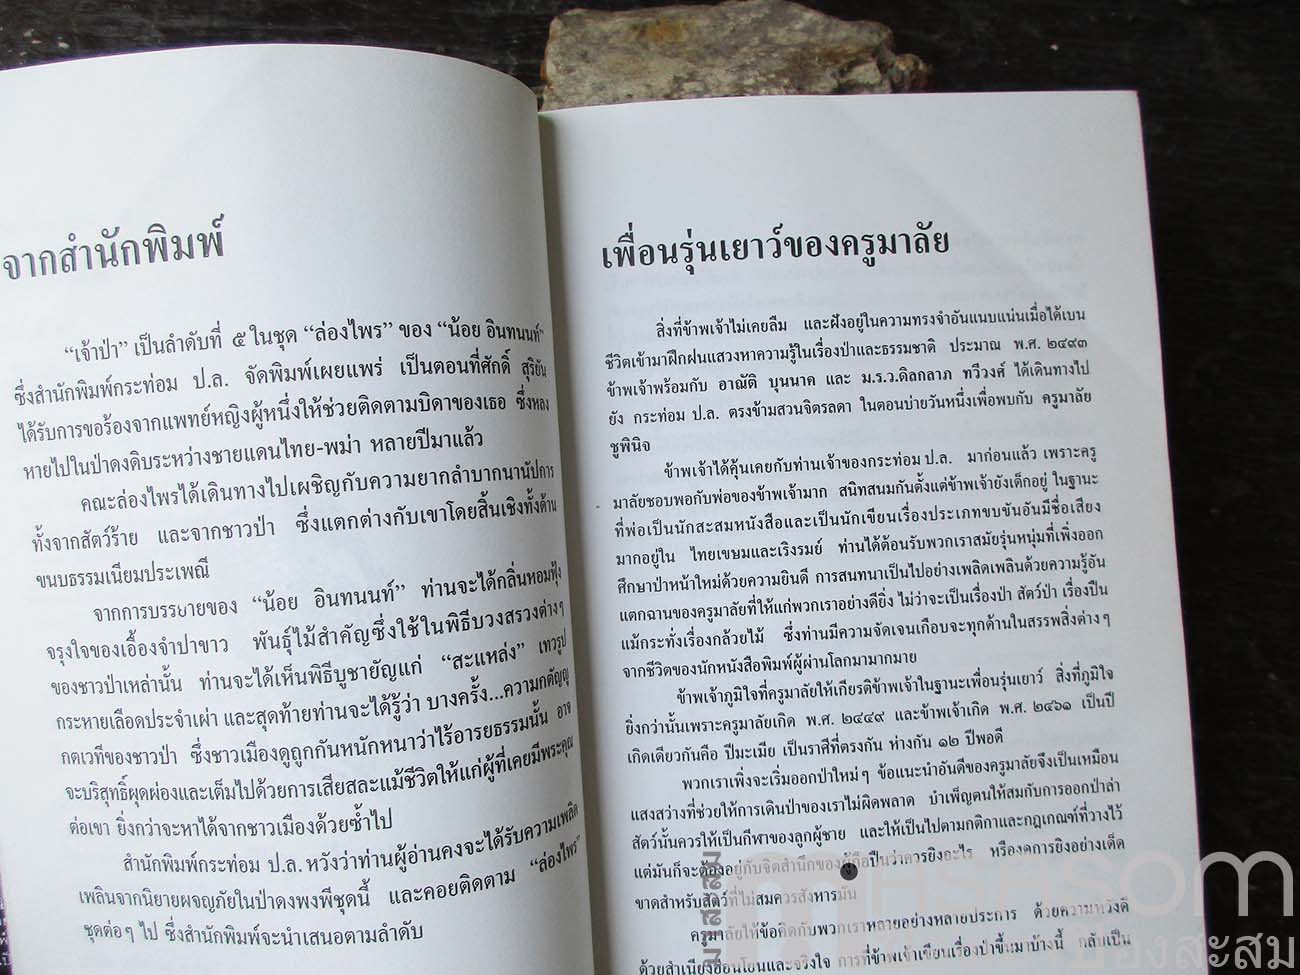 จากสำนักพิมพ์
“เจ้าป่า” เป็นลำดับที่ ๕ ในชุด “ล่องไพร” ของ “น้อย อินทนนท์”
ซึ่งสำนักพิมพ์กระท่อม ป.ล. จัดพิมพ์เผยแพร่ เป็นตอนที่ศักดิ์ สุริยัน
ได้รับการขอร้องจากแพทย์หญิงผู้หนึ่งให้ช่วยติดตามบิดาของเธอ ซึ่งหลง
หายไปในป่าดงดิบระหว่างชายแดนไทย-พม่า หลายปีมาแล้ว
คณะล่องไพรได้เดินทางไปเผชิญกับความยากลำบากนานัปการ
ทั้งจากสัตว์ร้าย และจากชาวป่า ซึ่งแตกต่างกับเขาโดยสิ้นเชิงทั้งด้าน
ขนบธรรมเนียมประเพณี
จากการบรรยายของ “น้อย อินทนนท์” ท่านจะได้กลิ่นหอมฟุ้ง
จรุงใจของเอื้องจำปาขาว พันธุ์ไม้สำคัญซึ่งใช้ในพิธีบวงสรวงต่างๆ
ของชาวป่าเหล่านั้น ท่านจะได้เห็นพิธีบูชายัญแก่ “สะแหล่ง” เทวรูป
กระหายเลือดประจำเผ่า และสุดท้ายท่านจะได้รู้ว่า บางครั้ง...ความกตัญญู
กตเวทีของชาวป่า ซึ่งชาวเมืองดูถูกกันหนักหนาว่าไร้อารยธรรมนั้น อาจ
จะบริสุทธิ์ผุดผ่องและเต็มไปด้วยการเสียสละแม้ชีวิตให้แก่ผู้ที่เคยมีพระคุณ
ต่อเขา ยิ่งกว่าจะหาได้จากชาวเมืองด้วยซ้ำไป
สำนักพิมพ์กระท่อม ป.ล. หวังว่าท่านผู้อ่านคงจะได้รับความเพลิด
เพลินจากนิยายผจญภัยในป่าดงพงพีชุดนี้ และคอยติดตาม “ล่องไพร”
ชุดต่อๆ ไป ซึ่งสำนักพิมพ์จะนำเสนอตามลำดับ
เพื่อนรุ่นเยาว์ของครูมาลัย
สิ่งที่ข้าพเจ้าไม่เคยลืม และฝังอยู่ในความทรงจำอันแนบแน่นเมื่อได้เบน
ชีวิตเข้ามาฝึกฝนแสวงหาความรู้ในเรื่องป่าและธรรมชาติ ประมาณ พ.ศ. ๒๔๙๓
ข้าพเจ้าพร้อมกับ อาณัติ บุนนาค และ ม.ร.ว.ดิลกลาภ ทวีวงศ์ ได้เดินทางไป
ยัง กระท่อม ป.ล. ตรงข้ามสวนจิตรลดา ในตอนบ่ายวันหนึ่งเพื่อพบกับ ครูมาลัย
ชูพินิจ
ข้าพเจ้าได้คุ้นเคยกับท่านเจ้าของกระท่อม ป.ล. มาก่อนแล้ว เพราะครู
มาลัยชอบพอกับพ่อของข้าพเจ้ามาก สนิทสนมกันตั้งแต่ข้าพเจ้ายังเด็กอยู่ ในฐานะ
ที่พ่อเป็นนักสะสมหนังสือและเป็นนักเขียนเรื่องประเภทขบขันอันมีชื่อเสียง
มากอยู่ใน ไทยเขษมและเริงรมย์ ท่านได้ต้อนรับพวกเราสมัยรุ่นหนุ่มที่เพิ่งออก
ศึกษาป่าหน้าใหม่ด้วยความยินดี การสนทนาเป็นไปอย่างเพลิดเพลินด้วยความรู้อัน
แตกฉานของครูมาลัยที่ให้แก่พวกเราอย่างดียิ่ง ไม่ว่าจะเป็นเรื่องป่า สัตว์ป่า เรื่องปืน
แม้กระทั่งเรื่องกล้วยไม้ ซึ่งท่านมีความจัดเจนเกือบจะทุกด้านในสรรพสิ่งต่างๆ
จากชีวิตของนักหนังสือพิมพ์ผู้ผ่านโลกมามากมาย
ข้าพเจ้าภูมิใจที่ครูมาลัยให้เกียรติข้าพเจ้าในฐานะเพื่อนรุ่นเยาว์ สิ่งที่ภูมิใจ
ยิ่งกว่านั้นเพราะครูมาลัยเกิด พ.ศ. ๒๔๔๙ และข้าพเจ้าเกิด พ.ศ. ๒๔๖๑ เป็นปี
เกิดเดียวกันคือ ปีมะเมีย เป็นราศีที่ตรงกัน ห่างกัน ๑๒ ปีพอดี
พวกเราเพิ่งจะเริ่มออกป่าใหม่ๆ ข้อแนะนำอันดีของครูมาลัยจึงเป็นเหมือน
แสงสว่างที่ช่วยให้การเดินป่าของเราไม่ผิดพลาด บำเพ็ญตนให้สมกับการออกป่าล่า
สัตว์นั้นควรให้เป็นกีฬาของลูกผู้ชาย และให้เป็นไปตามกติกาและกฎเกณฑ์ที่วางไว้
แต่มันก็จะต้องอยู่กับจิตสำนึกของผู้ถือปืนว่าควรยิงอะไร หรืองดการยิงอย่างเด็ด
ขาดสำหรับสัตว์ที่ไม่สมควรสังหารมัน
ครูมาลัยให้ข้อคิดกับพวกเราหลายอย่างหลายประการ ด้วยความหวังดี
ด้วยสำเนียงอ่อนโยนและจริงใจ การที่ข้าพเจ้าเขียนเรื่องป่าขึ้นมาบ้างนี้ กลับเป็น